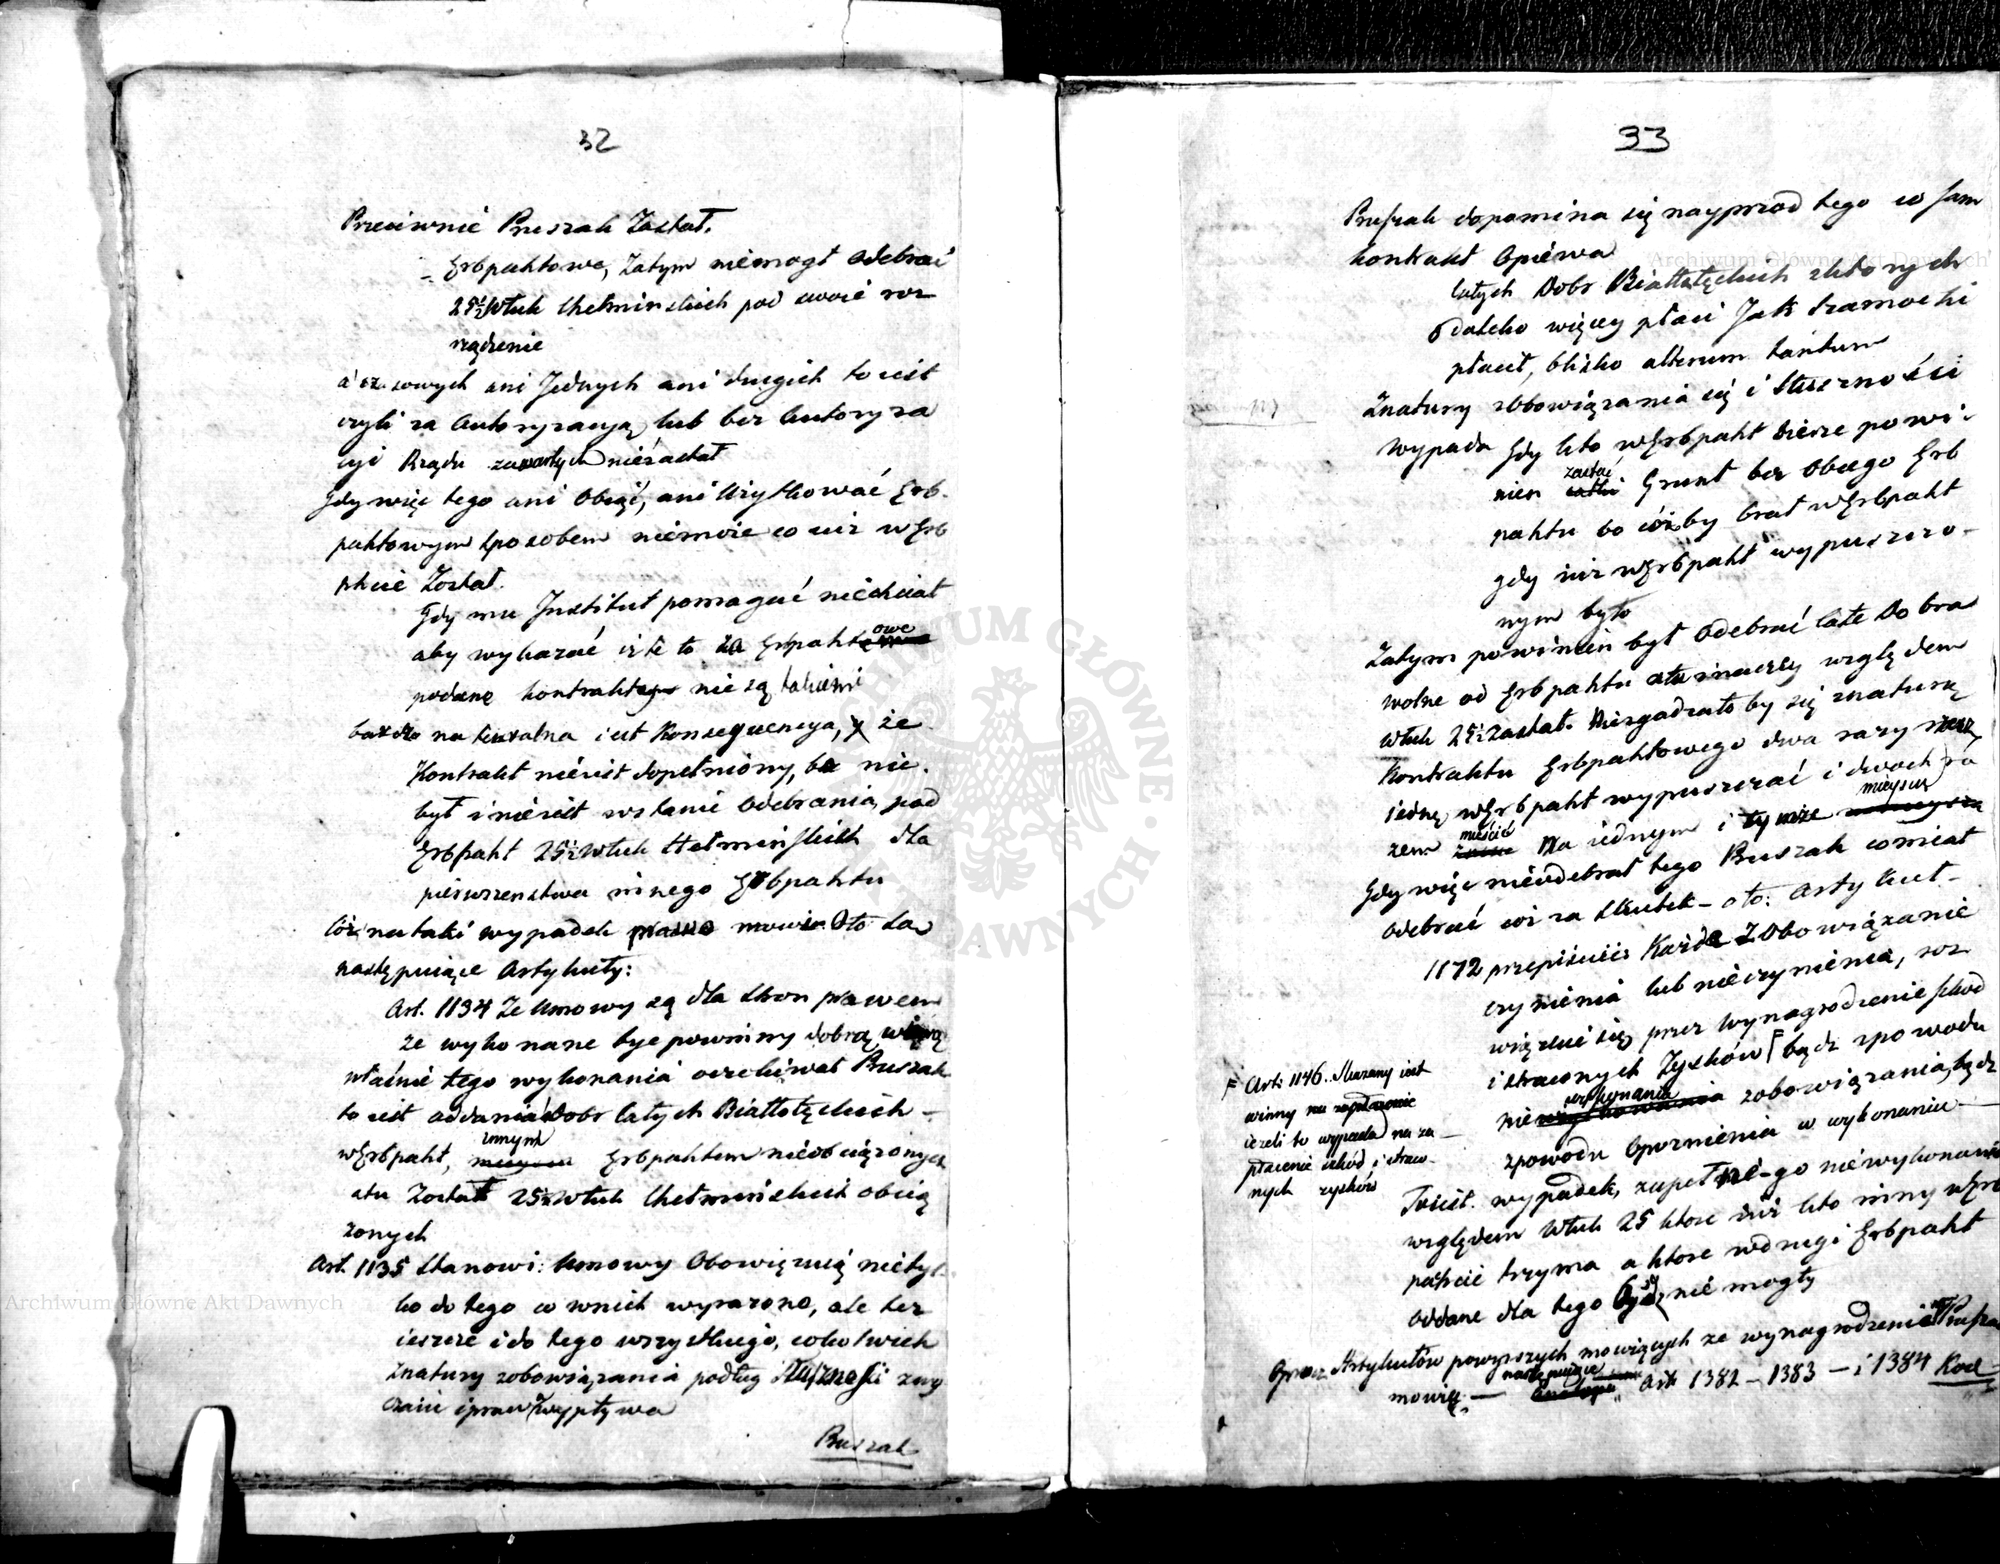 32
Przeciwnie Pruszak Zastał.
Erbpahtowe, Zatym niemogł odebrać
25½ Włuk Chełminskich pod swoie roz
rządzenie
ani Jednych ani drugich to iest
czyli za Autoryzacyą lub bez Autoryza
cyi Rządu zawartych niezastał
Gdy więc tego ani Obiąć, ani Użytkować Erb-
pahtowym sposobem niemoże co iuż w Erb
pkcie Został.
Gdy mu Institut pomagać niechciał
aby wykazać iż te to za Erbpahtowe
podane kontrakta nie są takiemi
bardzo naturalna iest Konsequencya, że
Kontrakt nieiest dopełniony, bo nie
był i nieiest wstanie Odebrania pod
Erbpaht 25½ Włuk Hełminskich dla
pierwszenstwa innego Erbpahtu
Cóż na taki wypadek prawo mowi Oto są
następuiące Artykuły:
Art. 1134 Ze Umowy są dla stron prawem
że wykonane byc powinny dobrą wiarą
właśnie tego wykonania oczekiwał Pruszak
to iest oddania Dobr całych Białłołęckich -
w Erbpaht, innym Erbpahtem nieobciążonych
a tu Zostało 25½ Włuk Chełmińskich obcią
żonych
Art. 1135 Stanowi: Umowy Obowięzuią nietyl-
ko do tego co wnich wyrażono, ale też
ieszcze i do tego wszystkiego, cokolwiek
Znatury zobowiązania podług Słuszności zwy
czaiu i praw wypływa
Pruszak
33
Pruszak dopomina się nayprzod tego co sam
kontrakt Opiewa
całych Dobr Białłołęckich z których
daleko więcey płaci Jak Szamocki
płacił, blizko alterum tantum
Znatury zobowiązania się i Słuszności
wypada Gdy kto w Erbpaht bierze powi-
nien zastać Grunt bez Obcego Erb
pahtu bo cóżby brał w Erbpaht
gdy iuż w Erbpaht wypuszczo-
nym było
Zatym powinien był Odebrać całe Dobra
wolne od Erbpahtu a tu inaczey względem
włuk 25½ zastał. Niezgadzało by się z naturą
Kontraktu Erbpahtowego dwa razy rzecz
iednę w Erbpaht wypuszczać i dwoch ra
zem mieścić Na iednym i tymże mieyscu
Gdy więc nieodebrał tego Pruszak co miał
odebrać coż za skutek - oto: Artykuł -
1172 przepisuie: Każde Zobowiązanie
czynienia lub nieczynienia, roz
więzuie się przez Wynagrodzenie szkod
i straconych Zysków F bądz z powodu
niewykonania zobowiązania, bądz
z powodu Opoznienia w wykonaniu -
F Art: 1146. Skazany iest
winny na zapłacenie
ieżeli to wypada na za -
płacenie szkód i straco-
nych zysków
To iest. wypadek, zupełne-go niewykonania
względem Włuk 25 ktore iuż kto inny w Erb
pahcie trzyma a ktore w drugi Erbpaht
oddane dla tego bydz nie mogły
Oprocz Artykułów powyzszych mowiących ze wynagrodzenie
mowią - następuiące Art: 1382 - 1383 - i 1384 Kod -